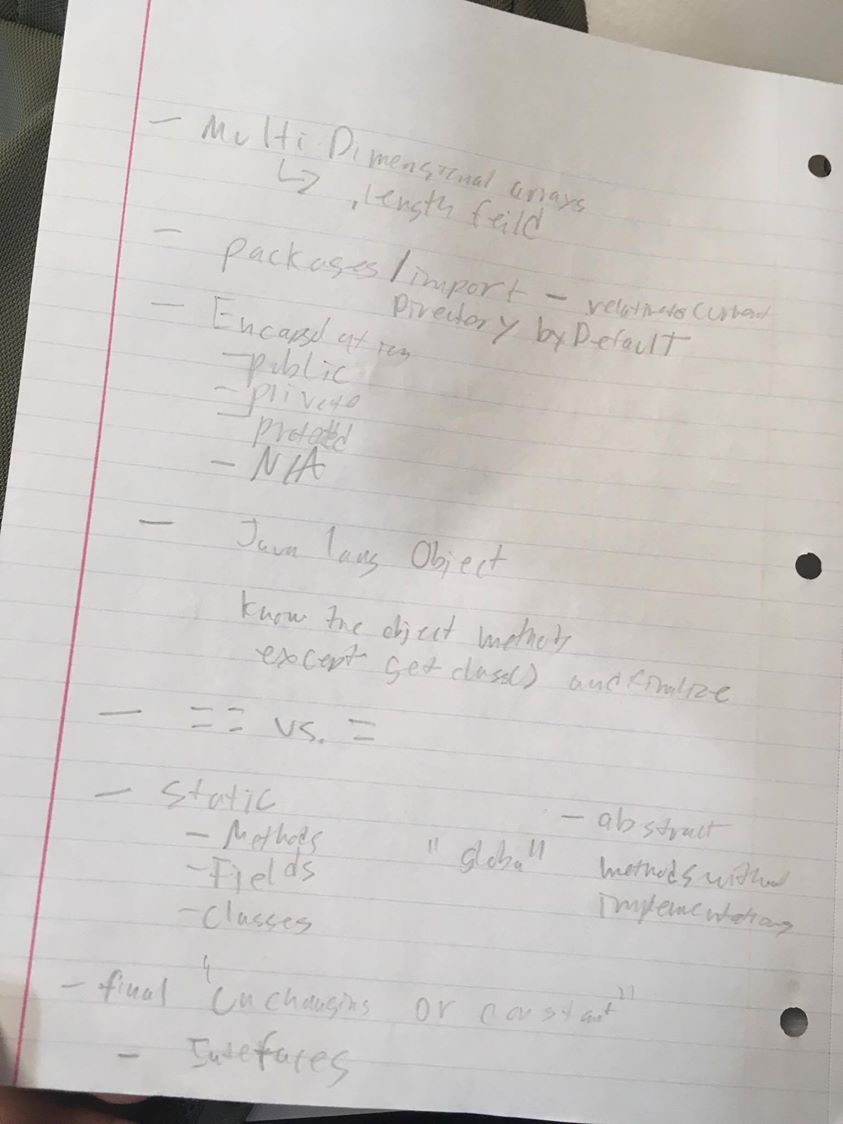 - Multi Dimensional arrays
↳ .length feild
- packages/import - relative to current
Directory by Default
- Encapsulation
- public
- private
- protected
- N/A
- Java lang Object
know the object methods
except getclass() and finalize
- == vs. =
- Static
- Methods
- Fields
- Classes
"global"
- abstract
methods without
implementations
- final "unchanging or constant"
- Intefaces